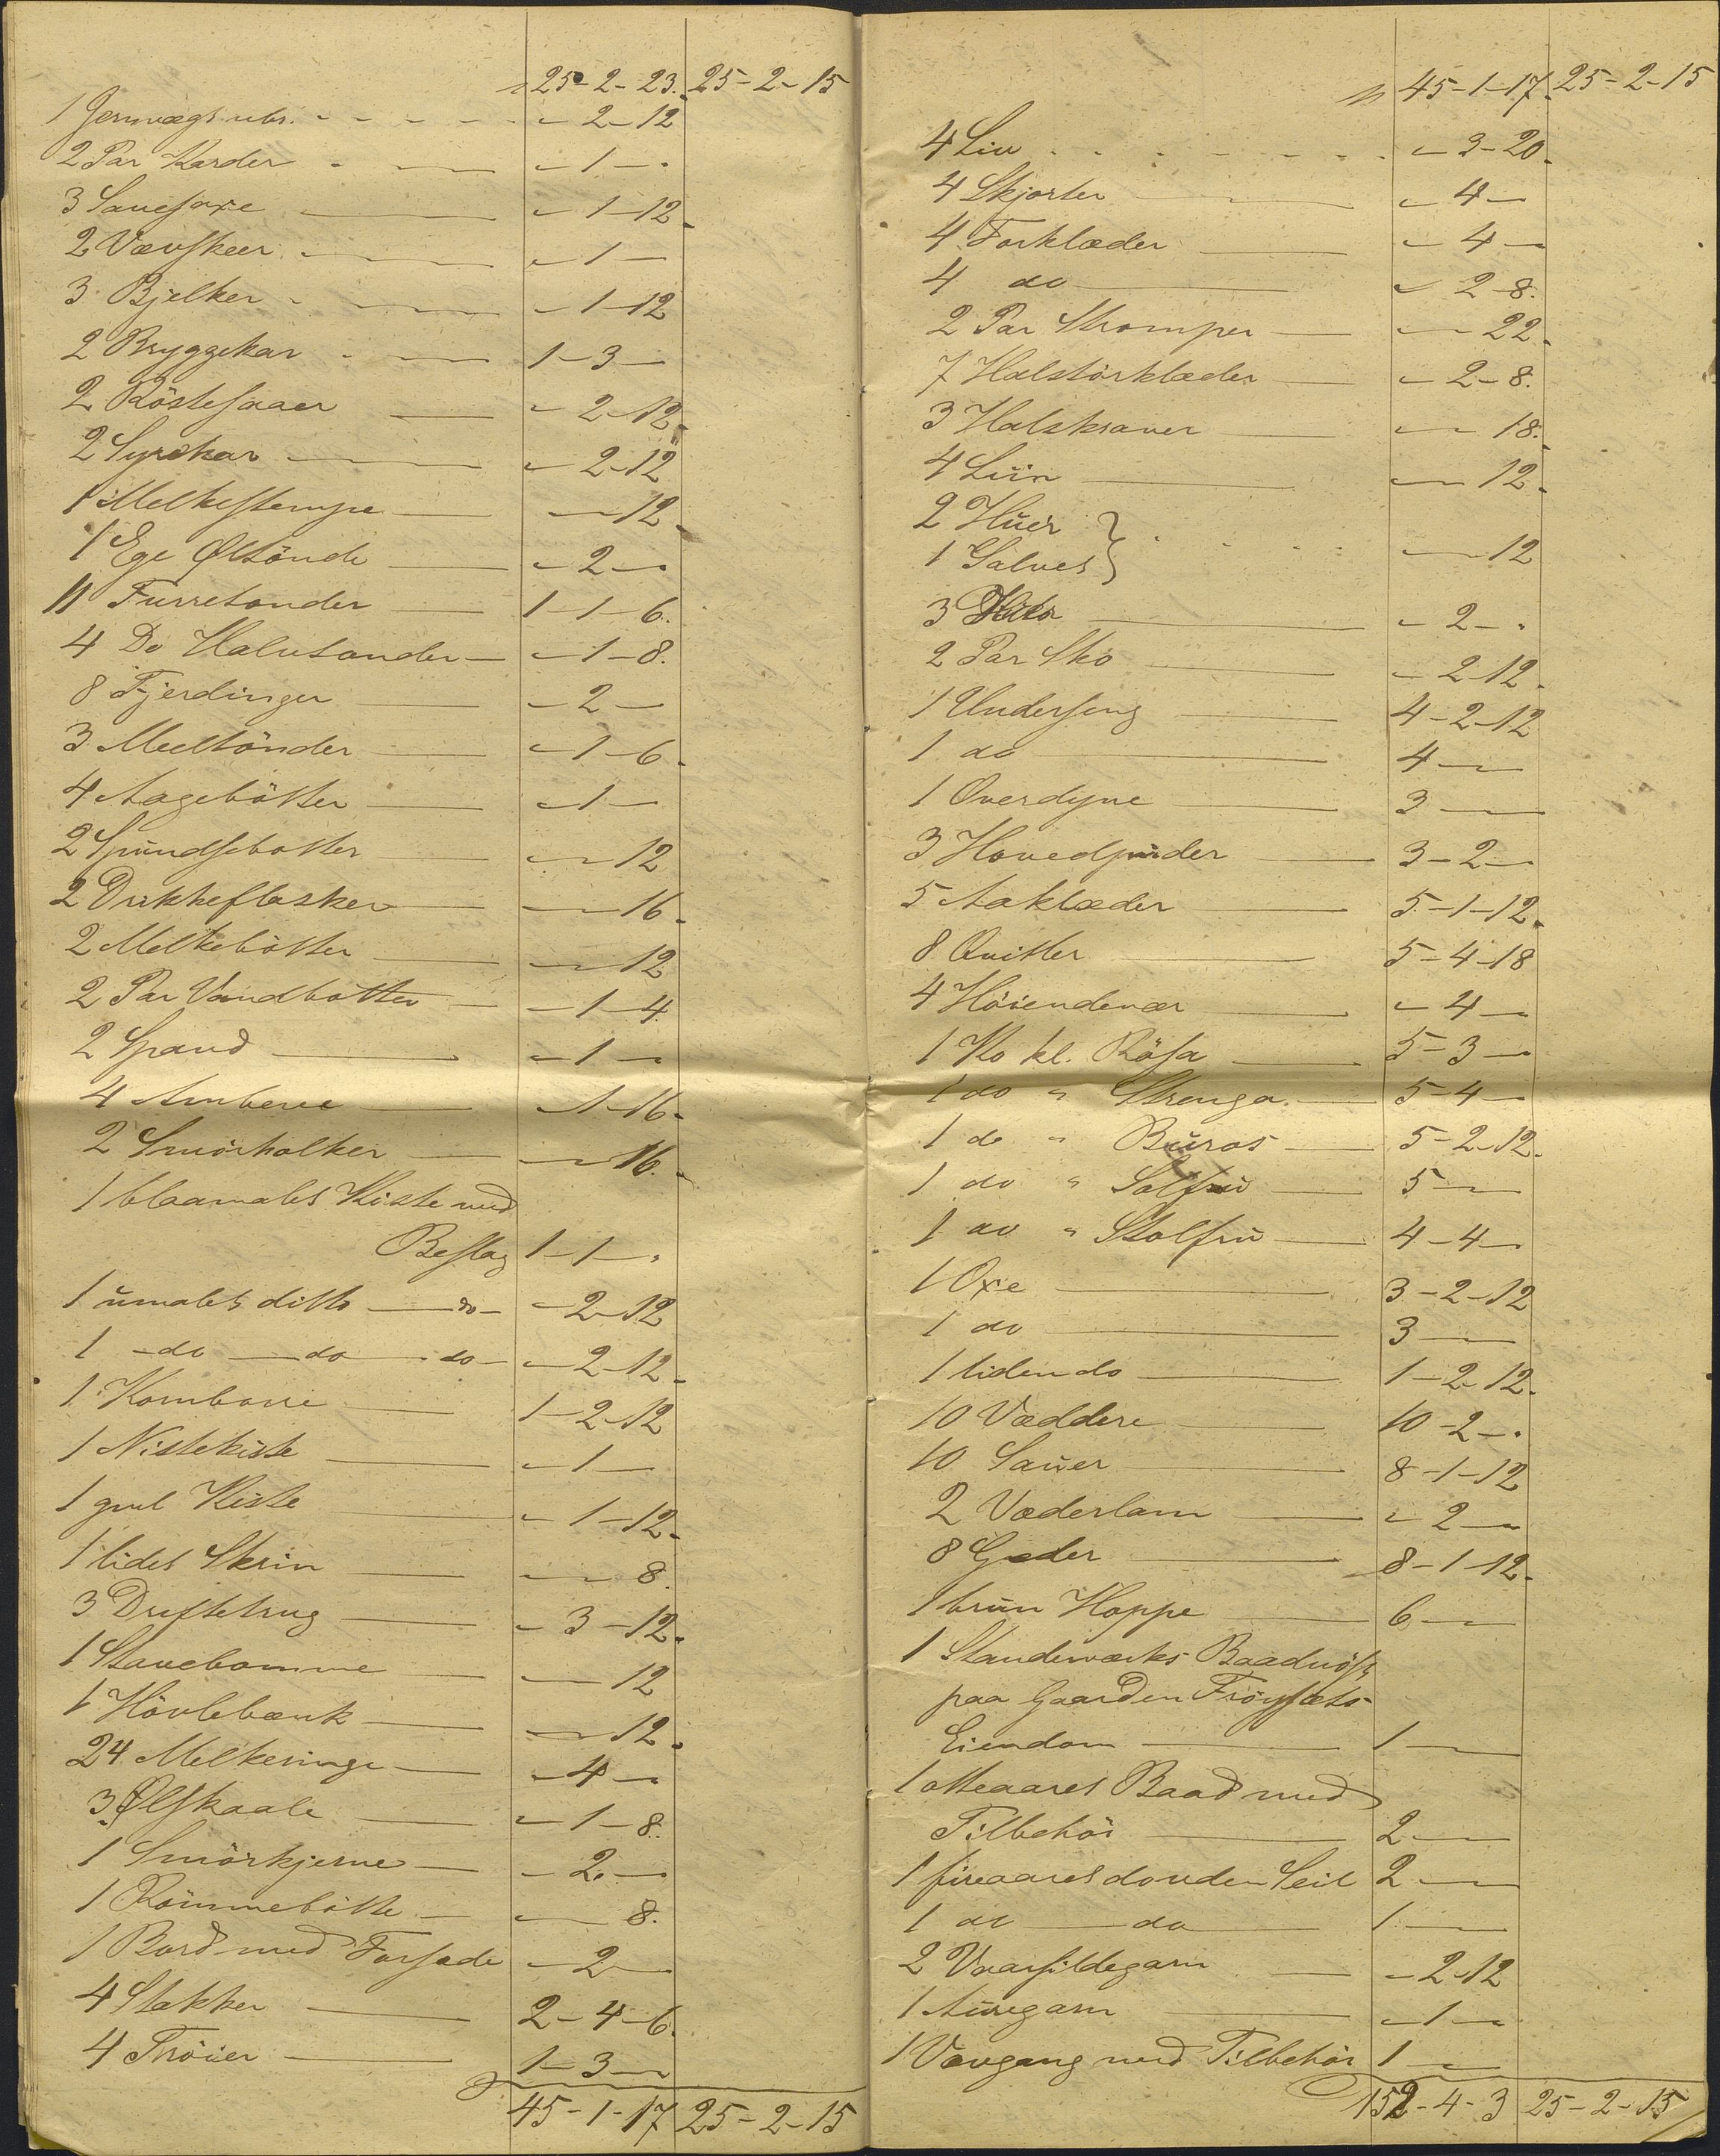 25-2-23. 25-2-15
1 Jernvægt - 2-12
2 Par Karder - 1 - "
3 Sauesaxe - 1-12
2 Vævskeer - 1 -
3 Bjelker - 1-12
2 Bryggekar 1-3 -
2 Röstesaaer - 2-12
2 Syrekar - 2-12
1 Melkestempe - - 12
1 Ege Øltönde - 2 -
11 Furretønder 1-1-6.
4 Do Halvtønder - 1-8.
8 Fjerdinger - 2 -
3 Meeltönder - 1-6
4 Aagebötter - 1 -
2 Spündsbøtter - - 12
2 Drikkeflasker - - 16
2 Melkebötter - - 12
2 Par Vandbøtter - 1-4
2 Spand - 1 -
4 Ambere - 1-16
2 Smörholker - - 16.
1 blaamalet Kiste med
Beslag 1-1 - "
1 ümalet ditto - do - - 2-12
1 - do - do - do - - 2-12
1 Kornbørie 1-2-12
1 Nistekiste - 1 -
1 gml Kiste - 1-12
1 lidet Skrin - - 8.
3 Driftetrug - 3-12
1 Stavebomme - - 12
1 Hövlebænk - - 12
24 Melkeringe - 4 -
3 Ølskaale - 1-8.
1 Smörkjerne - 2 -
1 Römmebötte - - 8.
1 Bord med Forsæde - 2 -
4 Stakker 2-4-6.
4 Tröier 1-3 -
45-1-17 25-2-15
45-1-17 25-2-15
4 Liv - 3-20
4 Skjorter - 4 -
4 Forklæder - 4 -
4 do - 2-8.
2 Par Strømper - - 22
7 Halstörklæder - 2-8.
3 Halskraver - - 18.
4 Liin - - 12
2 Hüer
1 Salves } - - 12
3 - 2 - "
2 Par Sko - 2-12
1 Underseng 4-2-12
1 do 4 - -
1 Overdyne 3 - -
3 Hovedpüder 3-2 -
5 Aaklæder 5-1-12
8 Qvitler 5-4-18
4 Höiendevær - 4 -
1 Ko kl. Rösa 5-3 -
1 do " Strenga 5-4 -
1 do " Büros 5-2-12
1 do " Solfrü 5 - -
1 do " Stolfrü 4-4 -
1 Oxe 3-2-12
1 do 3 - -
1 liden do 1-2-12
10 Væddere 10-2 - "
10 Sauer 8-1-12
2 Væderlam - 2 -
8 Geder 8-1-12
1 brün Hoppe 6 - -
1 Standeværks Baadnöst
paa Gaarden Fröysæts
Eiendom 1 - -
1 otteaaret Baad med
Tilbehör 2 - -
1 fireaaret do uden Seil 2 - -
1 do - do 1 - -
2 Vaarsildegarn - 2-12
1 Aüregarn - 1 -
1 Vævgang med Tilbehör 1 - -
152-4-3 25-2-15